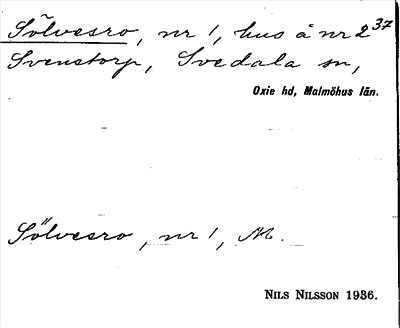 Sölvesro, nr 1, hus å nr 2 37
Svenstorp, Svedala sn,
Oxie hd, Malmöhus län.
Sölvesro, nr 1, M.
NILS NILSSON 1936.